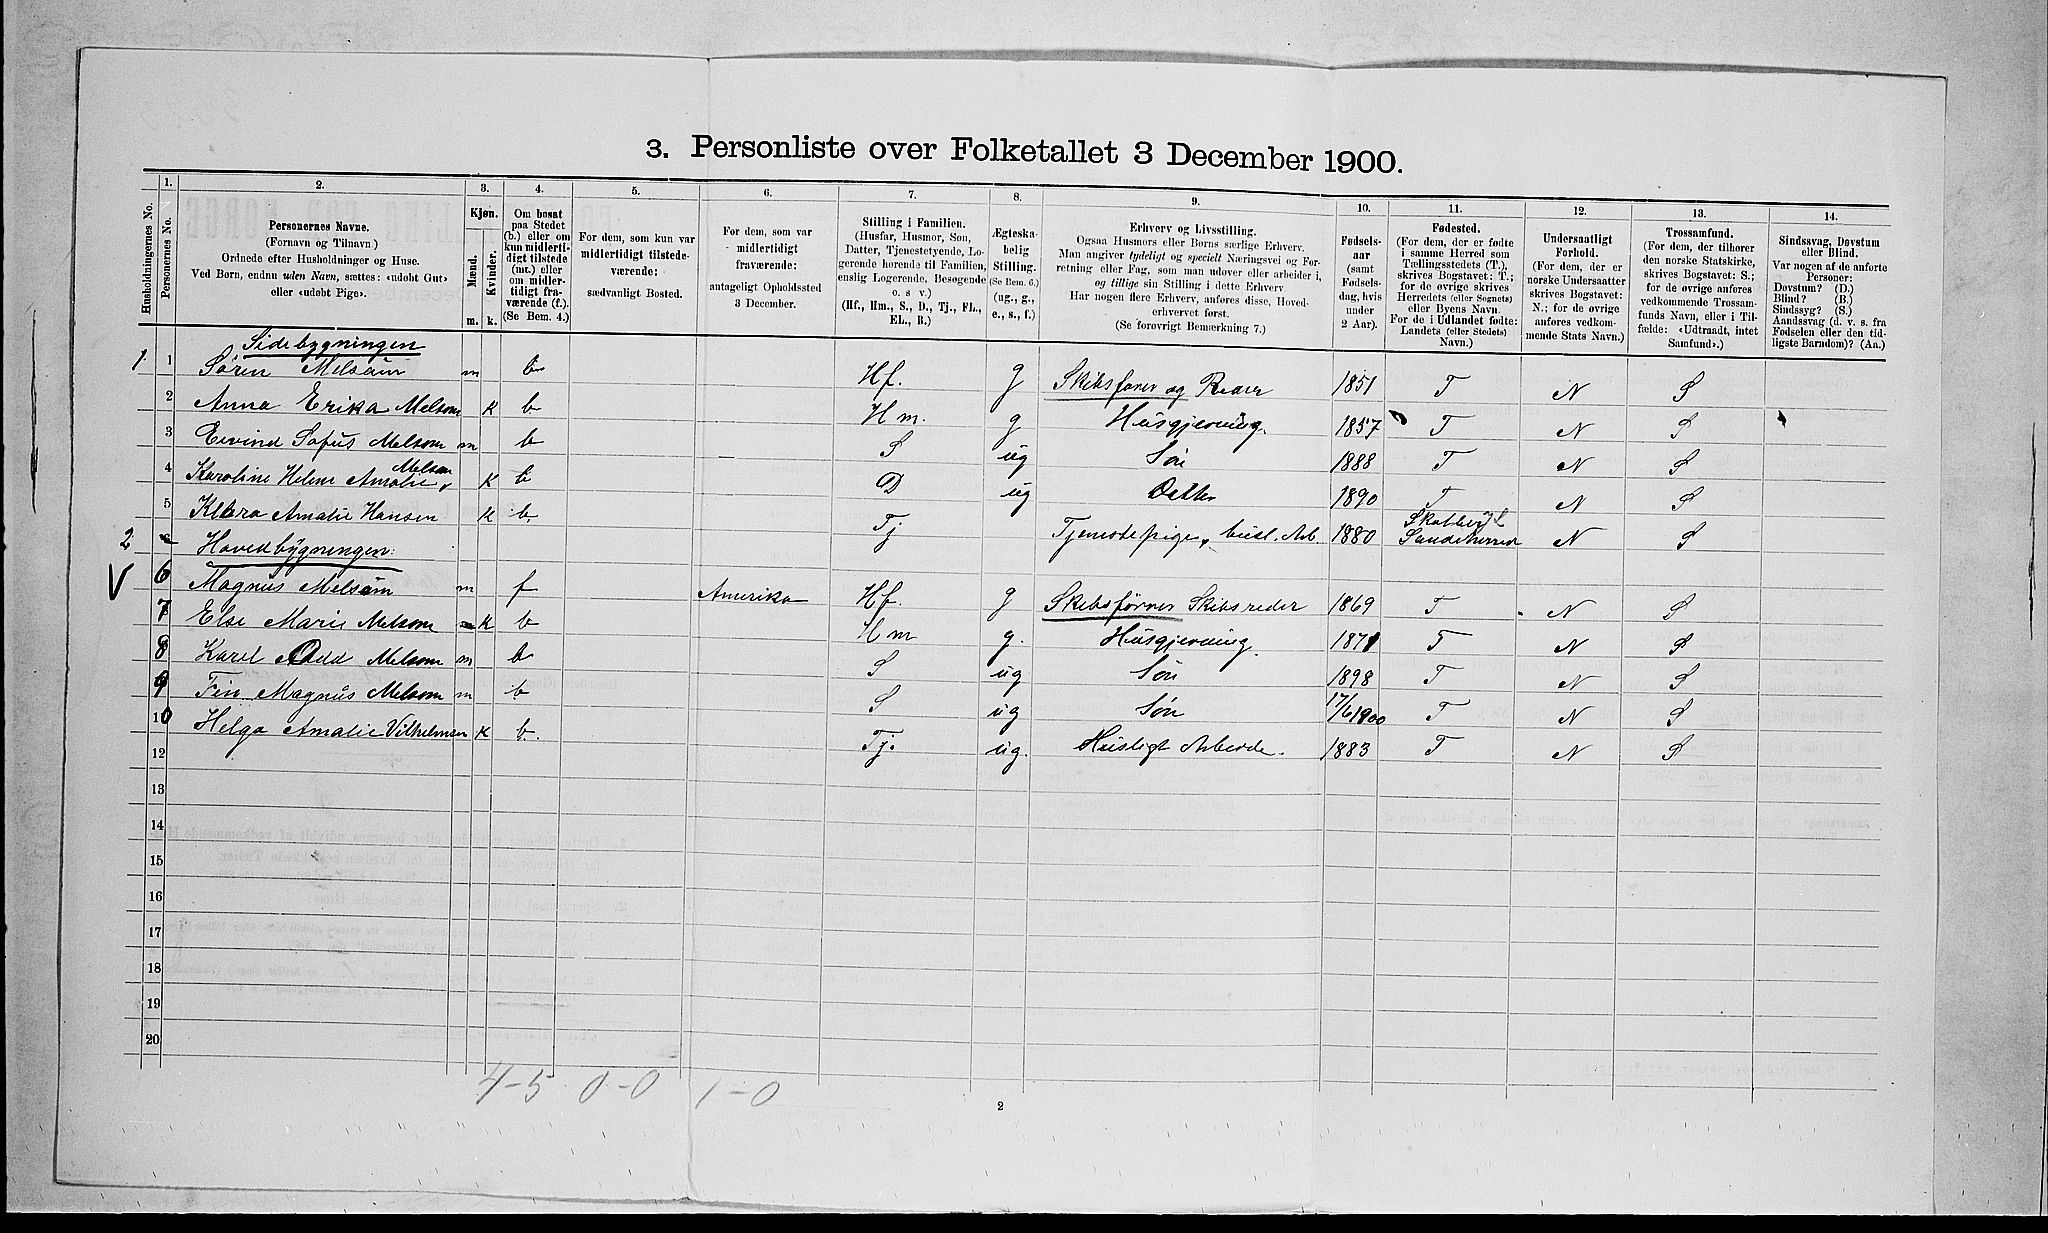 3. Personliste over Folketallet 3 December 1900.
Husholdningernes No.
1.
Personernes No.
2.
Personernes Navne.
(Fornavn og Tilnavn.)
Ordnede efter Husholdninger og Huse.
Ved Børn, endnu uden Navn, sættes: «udøbt Gut»
eller «udøbt Pige».
3.
Kjøn.
Mænd.
Kvinder.
m. k.
4.
Om bosat
paa Stedet
(b.) eller om
kun midlerti-
digt tilstede
(mt.) eller
om midler-
tidigt fra-
værende (f.).
(Se Bem. 4.)
5.
For dem, som kun var
midlertidigt tilstede-
værende:
sædvanligt Bosted.
6.
For dem, som var
midlertidigt
fraværende:
antageligt Opholdssted
3 December.
7.
Stilling i Familien.
(Husfar, Husmor, Søn,
Datter, Tjenestetyende, Lo-
gerende hørende til Familien,
enslig Logerende, Besøgende
o. s v.)
(Hf., Hm., S., D., Tj., FL.,
EL., B.)
8.
Ægteska-
belig
Stilling.
(Se Bem. 6.)
(ug., g.,
e., s., f.)
9.
Erhverv og Livsstilling.
Ogsaa Husmors eller Børns særlige Erhverv.
Man angiver tydeligt og specielt Næringsvei og For-
retning eller Fag, som man udøver eller arbeider i,
og tillige sin Stilling i dette Erhverv.
Har nogen flere Erhverv, anføres disse, Hoved-
erhvervet først.
(Se forøvrigt Bemærkning 7.)
10.
Fødsels-
aar
(samt
Fødsels-
dag, hvis
under
2 Aar).
11.
Fødested.
(For dem, der er fødte
i samme Herred som
Tællingsstedets (T.),
skrives Bogstavet: T.;
for de øvrige skrives
Herredets (eller Sognets)
eller Byens Navn.
For de i Udlandet fødte:
Landets (eller Stedets)
Navn.)
12.
Undersaatligt
Forhold.
(For dem, der er
norske Undersaatter
skrives Bogstavet:
N.; for de øvrige
anføres vedkom-
mende Stats Navn.)
13.
Trossamfund.
(For dem, der tilhører
den norske Statskirke,
skrives Bogstavet: S.;
for de øvrige anføres
vedkommende Trossam-
funds Navn, eller i Til-
fælde: «Udtraadt, intet
Samfund».)
14.
Sindssvag, Døvstum
eller Blind.
Var nogen af de anførte
Personer:
Døvstum? (D.)
Blind? (B.)
Sindssyg? (S.)
Aandssvag (d. v. s. fra
Fødselen eller den tid-
ligste Barndom)? (Aa.)
Sidebygningen
1 1 Sören Melsom m b Hf. g Skibsfører og Reder 1851 T N S
2 Anna Erika Melsom k b Hm. g Husgjerning. 1857 T N S
3 Eivind Sofus Melsom m b S ug Søn 1888 T N S
4 Karoline Helene Amalie Melsom k b D ug Datter 1890 T N S
5 Klara Amalie Hansen k b. Tj Tjenestepige, husl. Arb. 1880 Sandeherred N S
2 Hovedbygningen:
6 Magnus Melsom m f Amerika Hf. g Skibsfører Skibsreder 1869 T N S
7 Else Marie Melsom k b Hm g. Husgjerning. 1871 T N S
8 Karl Odd Melsom m b S ug Søn 1898 T N S
9 Fin Magnus Melsom m b S ug Søn 17/6 1900 T N S
10 Helga Amalie Vilhelmsen k b. Tj. ug. Husligt Arbeide. 1883 T N S
12
13
14
15
16
17
18
19
20
4-5 0-0 1-0
2